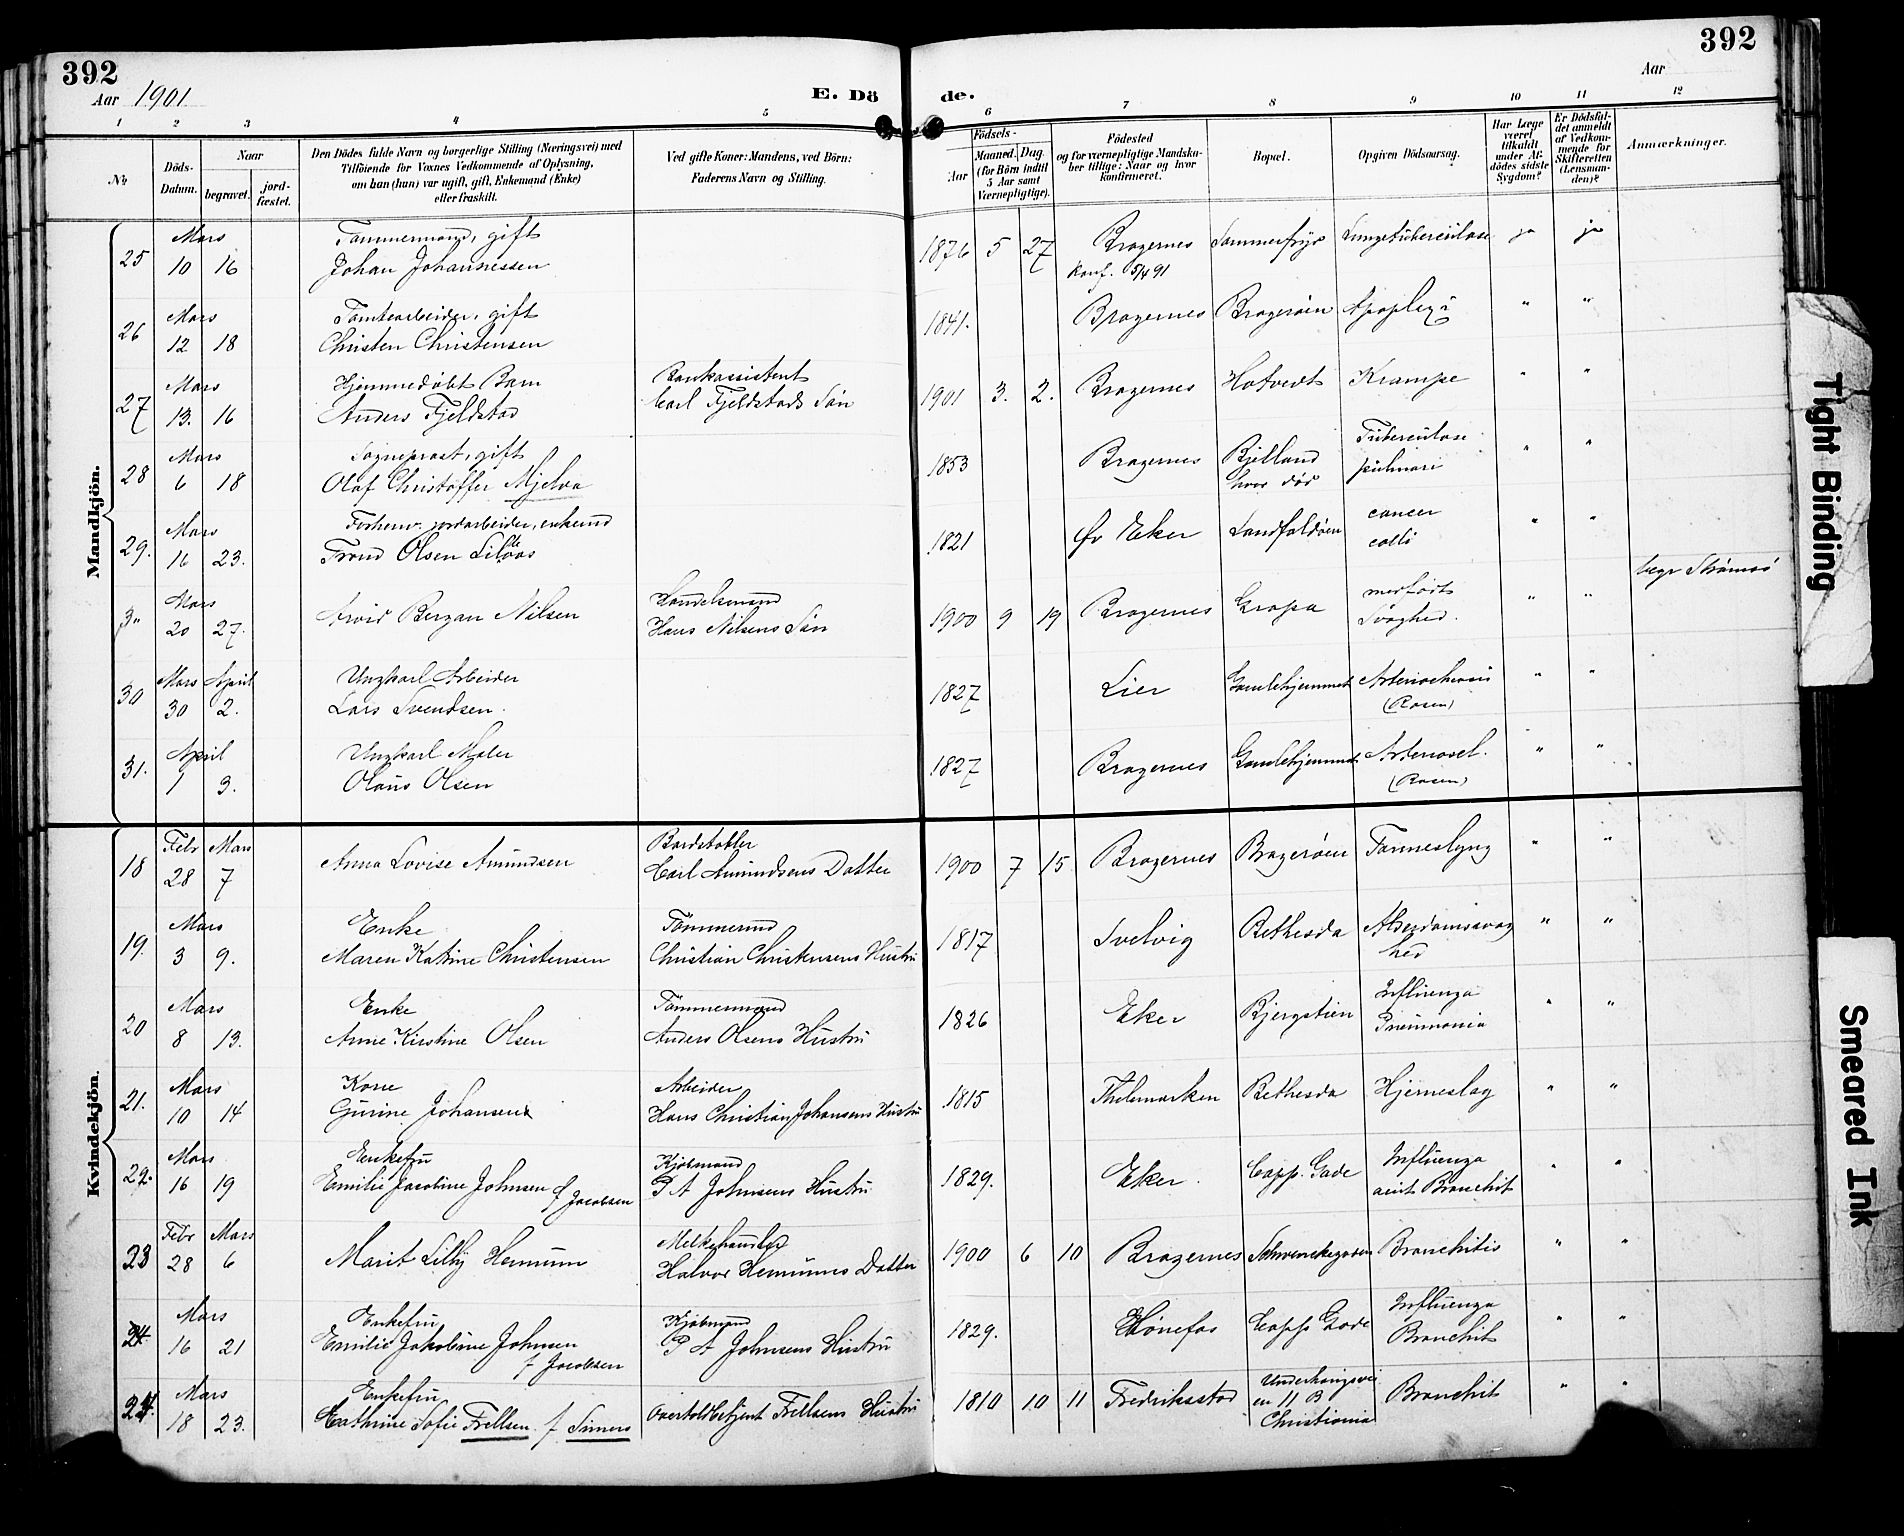 392
392
Aar 1901
E. Dö
de.
Aar
1 2 3 4 5 6 7 8 9 10 11 12
No
Döds-Datum.
Naar
begravet.
jord-fæstet.
Den Dödes fulde Navn og borgerlige Stilling (Næringsvei) med
Tilföiende for Voxnes Vedkommende af Oplysning,
om han (hun) var ugift, gift, Enkemand (Enke)
eller fraskilt.
Ved gifte Koner: Mandens, ved Börn:
Faderens Navn og Stilling.
Födsels-
Aar
Maaned. Dag.
(for Börn indtil
5 Aar samt
Værnepligtige).
Födested
og for værnepligtige Mandska-
ber tillige: Naar og hvor
konfirmeret.
Bopæl.
Opgiven Dödsaarsag.
Har Læge
været
tilkaldt
under Af-
dödes sidste
Sygdom?
Er Dödsfal-
det anmeldt
af Vedkom-
mende for
Skifteretten
(Lensman-
den)?
Anmærkninger.
Mandkjön.
25 Mars 10 16 Tømmermand, gift
Johan Johannessen 1876 5 27 Bragernes Sommerfryd Lungetuberculose ja ja
Konf. 5/4 91
26 Mars 12 18 Tomtearbeider, gift
Christen Christensen 1841. Bragernes Bragerøen Apoplexi " "
27 Mars 13. 16 Hjemmedøbt Barn
Anders Fjeldstad Bankassistent
Carl Fjeldstads Søn 1901 3. 2. Bragernes Hotvedt Krampe " "
28 Mars 6 18 Sogneprest, gift
Olaf Christoffer Mjelva 1853 Bragernes Bjelland
hvor død Tuberculose
pulmon " "
29. Mars 16 23. Forhenv. jordarbeider, enkemd
Trond Olsen 1821 Øv Eker Landfaldøen cancer
colli " "
3" Mars 20 27. Arvid Bergan Nilsen Handelsmand
Hans Nilsens Søn 1900 9 19 Bragernes medfødt
Svaghed. " " begr Strømsø
30 Mars April 30 2. Ungkarl Arbeider
Lars Svendsen. 1827 Lier Gamlehjemmet " "
31. April 1 3. Ungkarl Maler
Olaus Olsen 1827 Bragernes Gamlehjemmet Arterioscl. " "
Kvindekjön.
18 Febr Mars 28 7 Anna Lovise Amundsen Bordstabler
Carl Amundsens Datter 1900 7 15 Bragernes Bragerøen " "
19. Mars 3 9. Enke
Maren Katrine Christensen Tømmermd
Christian Christensens Hustru 1817 Svelvig Bethesda Alderdomssvag
hed " "
20 Mars 8 13. Enke
Anne Kirstine Olsen Tømmermand
Anders Olsens Hustru 1826 Eker Bjergstien Influenza
Pneumonia " "
21. Mars 10 14 Kone
Gurine Johansen Arbeider
Hans Christian Johansens Hustru 1815 Thelemarken Bethesda Hjerneslag " "
22. Mars 16 19 Enkefru
Emilie Jacobine Johnsen f Jacobsen Kjøbmand
P A Johnsens Hustru 1829. Eker. Capp. Gade Influenza
acut Bronchit " "
23 Febr Mars 28 6 Marit Lilly Hemum
Halvor Hemums Datter 1900 6 10 Bragernes Schwenckegaden Bronchitis " "
24 Mars 16 21 Enkefru
Emilie Jakobine Johnsen
f Jacobsen Kjøbmand
P A Johnsens Hustru 1829. Hønefos Capps Gade Influenza
Bronchit " "
24. Mars 18 23. Enkefru
Cathrine Sofie Frellsen f Simers Overtoldbetjent Frellsens Hustru 1810 10 11 Fredriksstad Underhaugsvei
en 11 B
Christiania Bronchit " "
Tight Binding
Smeared Ink